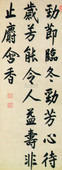 勁節臨冬勁芳心待
歲芳能令人益壽非
止麝含香